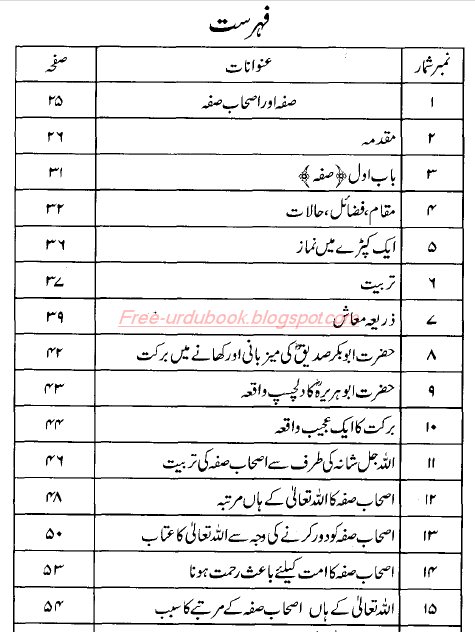 فہرست
نمبر شمار عنوانات صفحہ
۱ صفہ اور اصحاب صفہ ۲۵
۲ مقدمہ ۲۶
۳ باب اول ﴿صفہ﴾ ۳۱
۴ مقام، فضائل، حالات ۳۲
۵ ایک کپڑے میں نماز ۳۶
۶ تربیت ۳۷
۷ ذریعہ معاش ۳۹
Free-urdubook.blogspot.com
۸ حضرت ابو بکر صدیقؓ کی میزبانی اور کھانے میں برکت ۴۲
۹ حضرت ابو ہریرہؓ کا دلچسپ واقعہ ۴۳
۱۰ برکت کا ایک عجیب واقعہ ۴۴
۱۱ اللہ جل شانہ کی طرف سے اصحاب صفہ کی تربیت ۴۶
۱۲ اصحاب صفہ کا اللہ تعالیٰ کے ہاں مرتبہ ۴۸
۱۳ اصحاب صفہ کو دور کرنے کی وجہ سے اللہ تعالیٰ کا عتاب ۵۰
۱۴ اصحاب صفہ کا امت کیلئے باعث رحمت ہونا ۵۳
۱۵ اللہ تعالیٰ کے ہاں اصحاب صفہ کے مرتبے کا سبب ۵۴